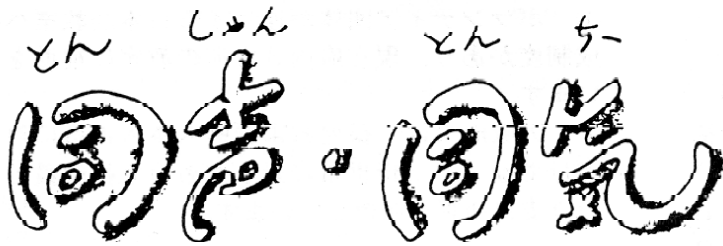 とん しゅん とん ちー
同声・同気